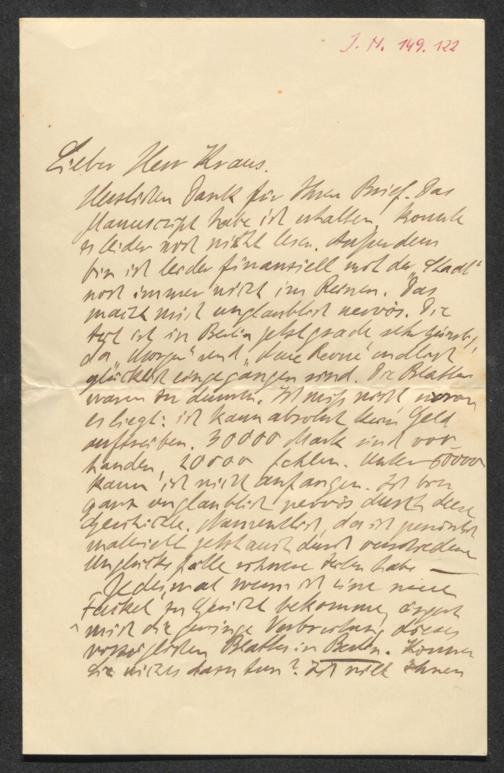 I. N. 149.122
Lieber Herr Kraus.
Herzlichen Dank für Ihren Brief. Das
Manuscript habe ich erhalten, konnte
es leider noch nicht lesen. Außerdem
bin ich leider finanziell mit der
noch immer nicht im Reinen. Das
macht mich unglaublich nervös. Die
Zeit ist in Berlin jetzt grade sehr günstig,
da „Morgen“ und „Neue Revue“ endlich
glücklich eingegangen sind. Die Blätter
waren zu dumm. Ich weiß nicht, woran
es liegt: ich kann absolut kein Geld
auftreiben. 30000 Mark sind vor-
handen, 20000 fehlen. Unter 50000
kann ich nicht anfangen. Ich bin
ganz unglaublich nervös durch diese
Geschichte. Namentlich, da ich persönlich
jetzt auch durch verschiedene
Unglücksfälle
Jedesmal wenn ich eine neue
Fackel zu Gesicht bekomme, ärgert
mich die geringe Verbreitung dieses
vorzüglichen Blattes in Berlin. Können
Sie nichts dazu tun? Ich will Ihnen